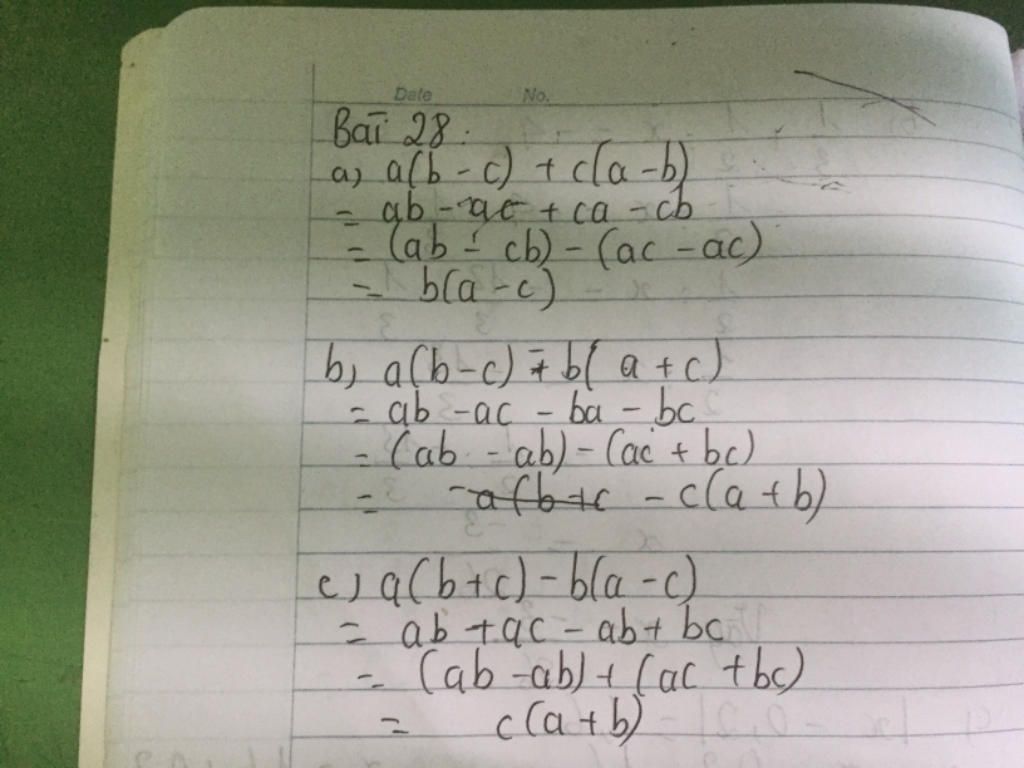 Date No.
Bài 28:
a) a(b - c) + c(a - b)
= ab - ac + ca - cb
= (ab - cb) - (ac - ac)
= b(a - c)
b) a(b - c) - b( a + c)
= ab - ac - ba - bc
= (ab - ab) - (ac + bc)
= - c(a + b)
c) a(b + c) - b(a - c)
= ab + ac - ab + bc
= (ab - ab) + (ac + bc)
= c(a + b)